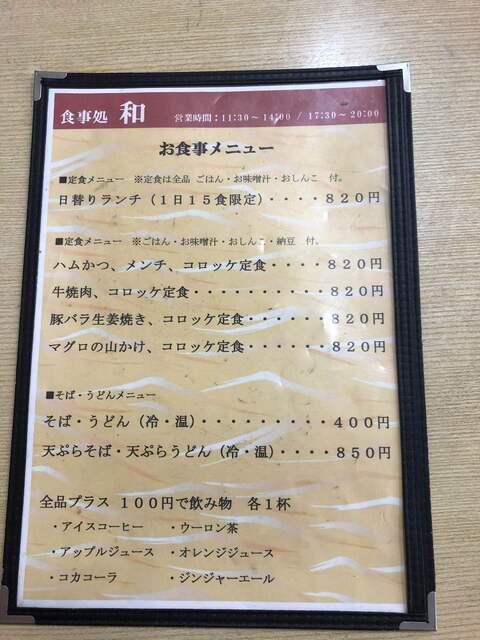 食事処 和 営業時間：11:30～14:00 / 17:30～20:00
お食事メニュー
■定食メニュー ※定食は全品 ごはん・お味噌汁・おしんこ 付。
日替りランチ（１日１５食限定）・・・・８２０円
■定食メニュー ※ごはん・お味噌汁・おしんこ・納豆 付。
ハムかつ、メンチ、コロッケ定食・・・・８２０円
牛焼肉、コロッケ定食・・・・・・・・・８２０円
豚バラ生姜焼き、コロッケ定食・・・・・８２０円
マグロの山かけ、コロッケ定食・・・・・８２０円
■そば・うどんメニュー
そば・うどん（冷・温）・・・・・・・・４００円
天ぷらそば・天ぷらうどん（冷・温）・・・８５０円
全品プラス １００円で飲み物 各１杯
・アイスコーヒー ・ウーロン茶
・アップルジュース ・オレンジジュース
・コカコーラ ・ジンジャーエール